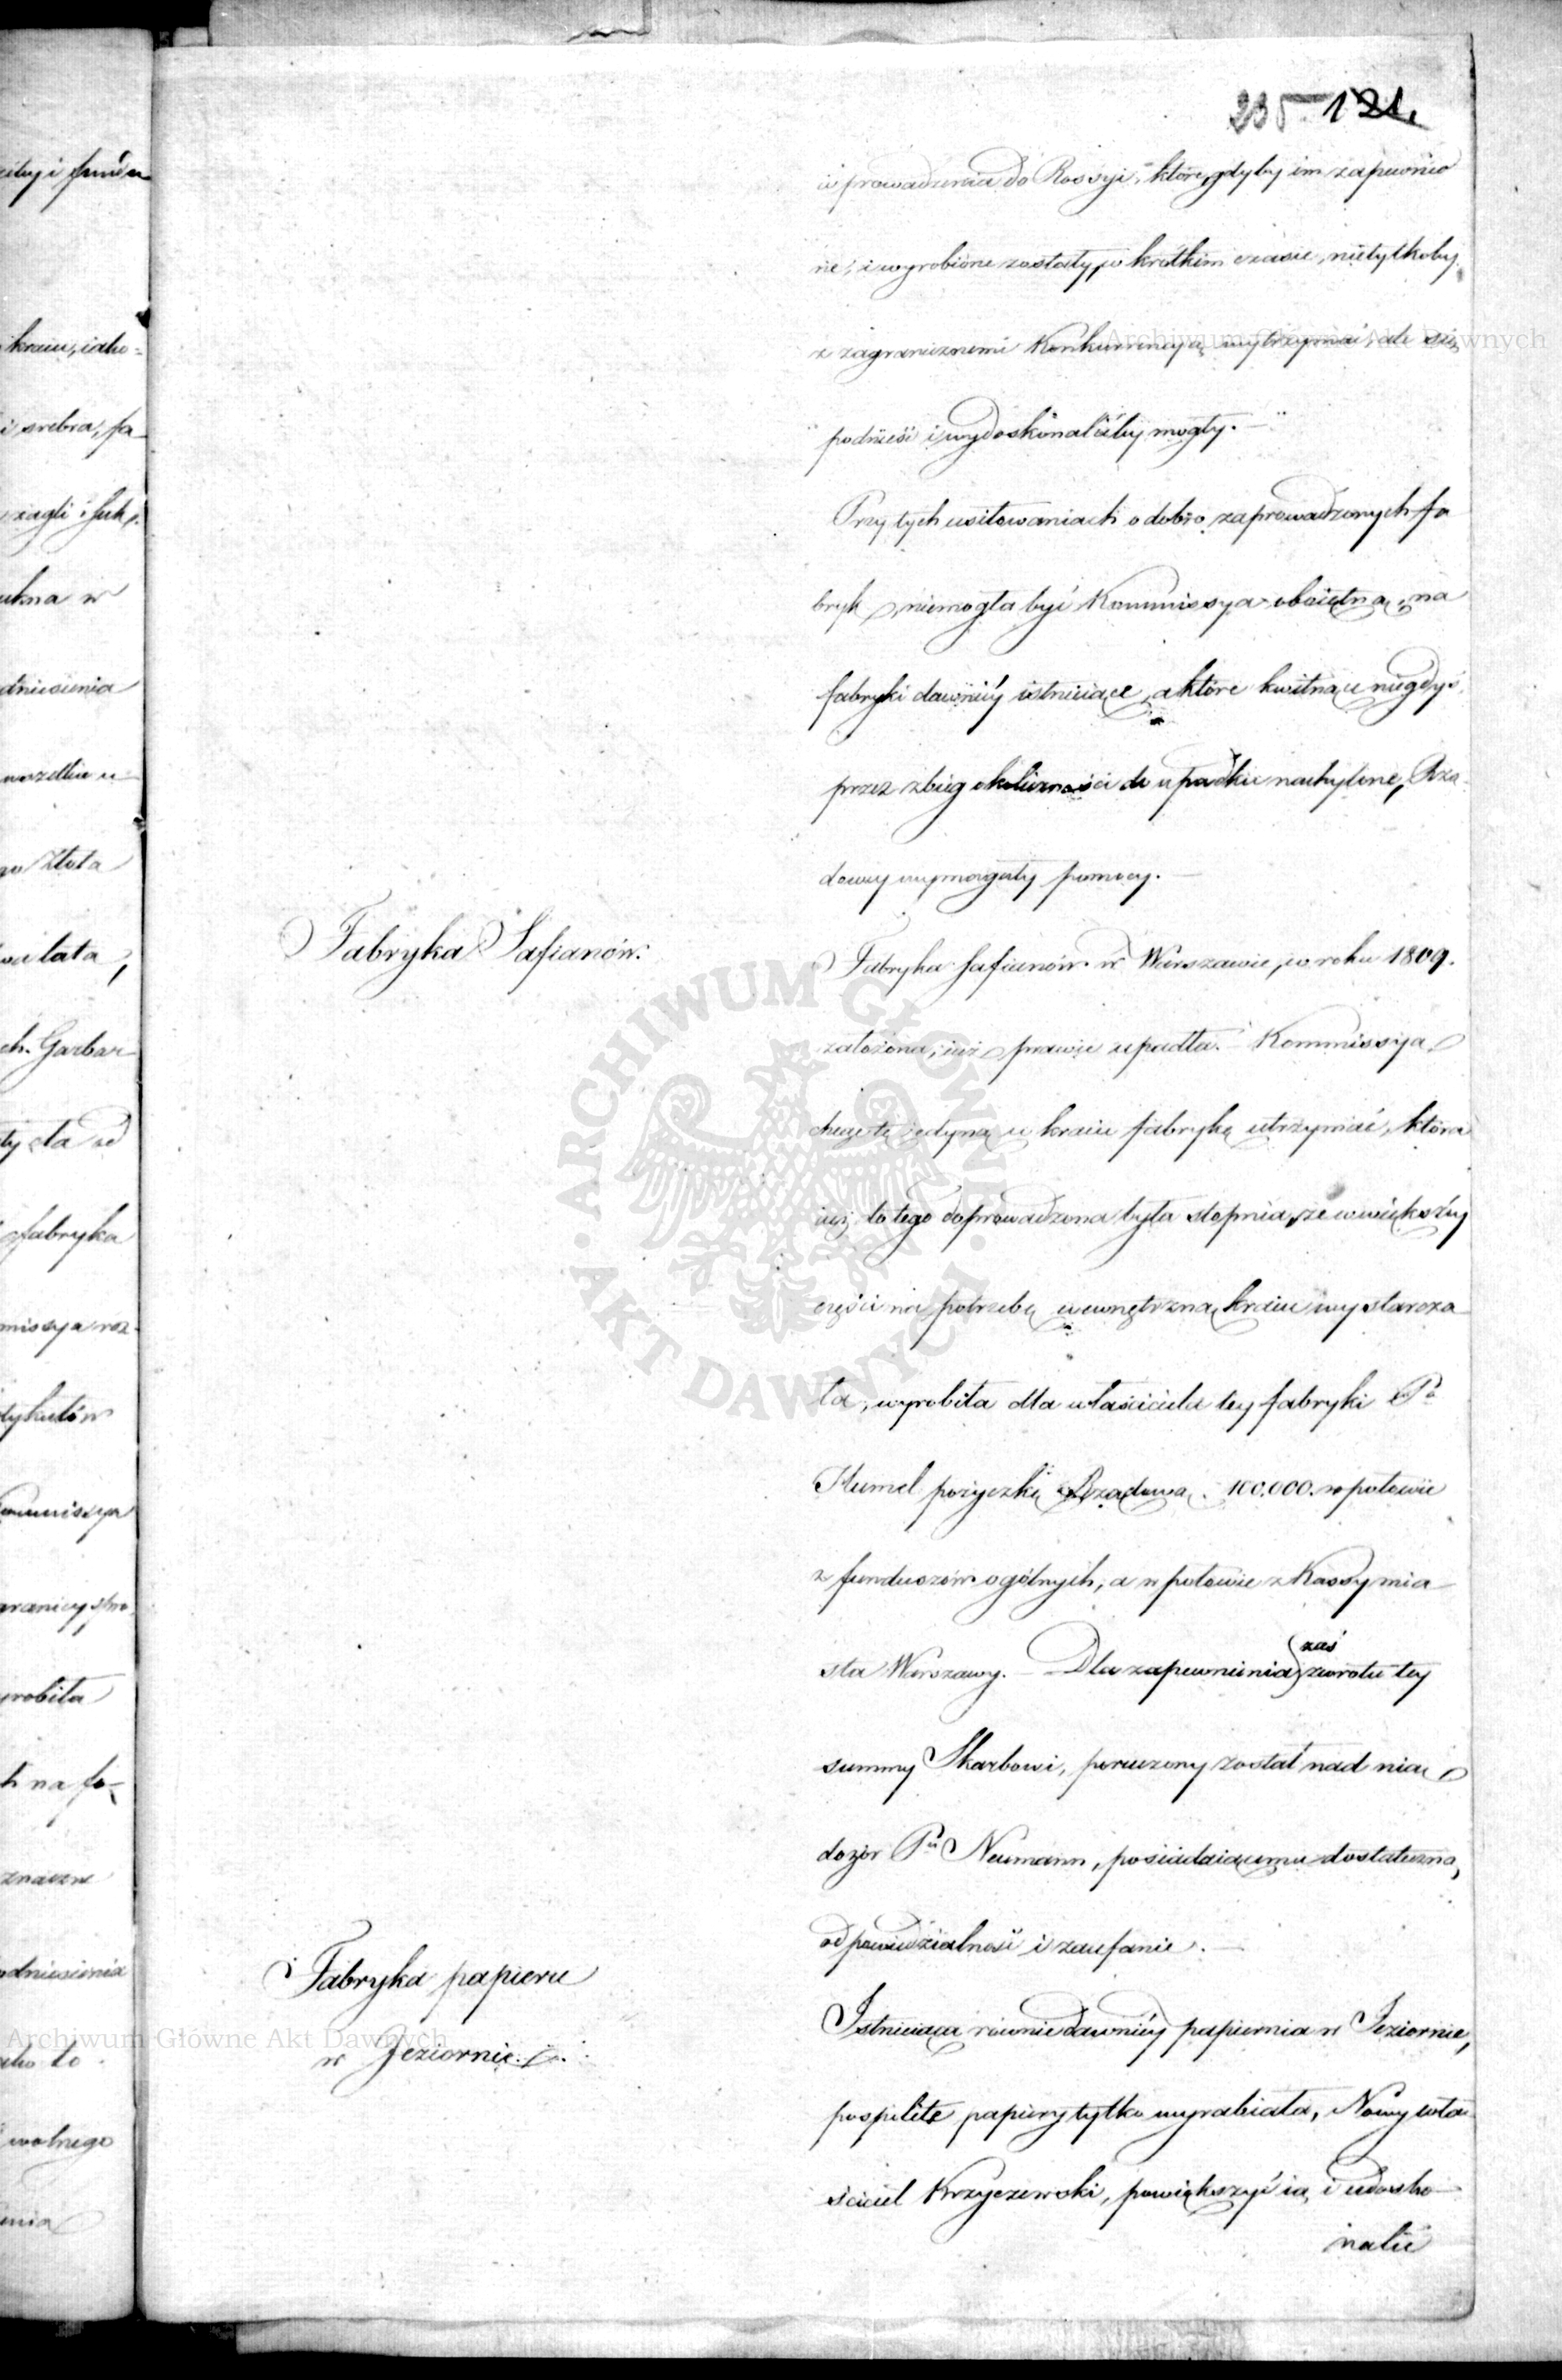 235. 121.
wprowadzenia do Rossyi, które gdyby im zapewnio
ne, i wyrobione zostały, w krótkim czasie, nietylkoby
z zagranicznemi Konkurrencyą wytrzymać, ale się
podnieść i wydoskonalićby mogły. —
Przy tych usiłowaniach o dobro zaprowadzonych fa
bryk, niemogła być Kommissya oboiętną, na
fabryki dawniéy istnieiące, a które kwitnące niegdyś,
przez zbieg okoliczności do upadku nachylone, Rzą
dowéy wymagały pomocy. —
Fabryka Safianów.
Fabryka Safianów w Warszawie, w roku 1809.
założona, iuż prawie upadła. Kommissya
chcąc tę iedyną w kraiu fabrykę utrzymać, która
iuż do tego doprowadzona była stopnia, że w większéy
części na potrzebę wewnętrzną kraiu wystarcza
ła, wyrobiła dla właściciela tey fabryki Pa
Humel pożyczkę Rządową. 100.000. w połowie
z funduszów ogólnych, a w połowie z Kassy mia
sta Warszawy. — Dla zapewnienia zaś zwrotu tey
summy Skarbowi, poruczony został nad nią
dozór Pu Neumann, posiadaiącemu dostateczną,
odpowiedzialność i zaufanie. —
Fabryka papieru
w Jeziornie.
Istnieiąca równie dawniéy papiernia w Jeziornie,
pospolite papiery tylko wyrabiała, Nowy wła
ściciel Krzyczewski, powiększyć ią, i udosko
nalić
ARCHIWUM GŁÓWNE AKT DAWNYCH
Archiwum Główne Akt Dawnych
Archiwum Główne Akt Dawnych
kraiu, iako
i srebra, fa
ukna w
dniesienia
wszelkie u
Złota
lata,
ch. Garbar
fabryka
missya roz
Kommissya
granicy
robiła
na fa
znaczne
odniesienia
ako to
wolnego
enia